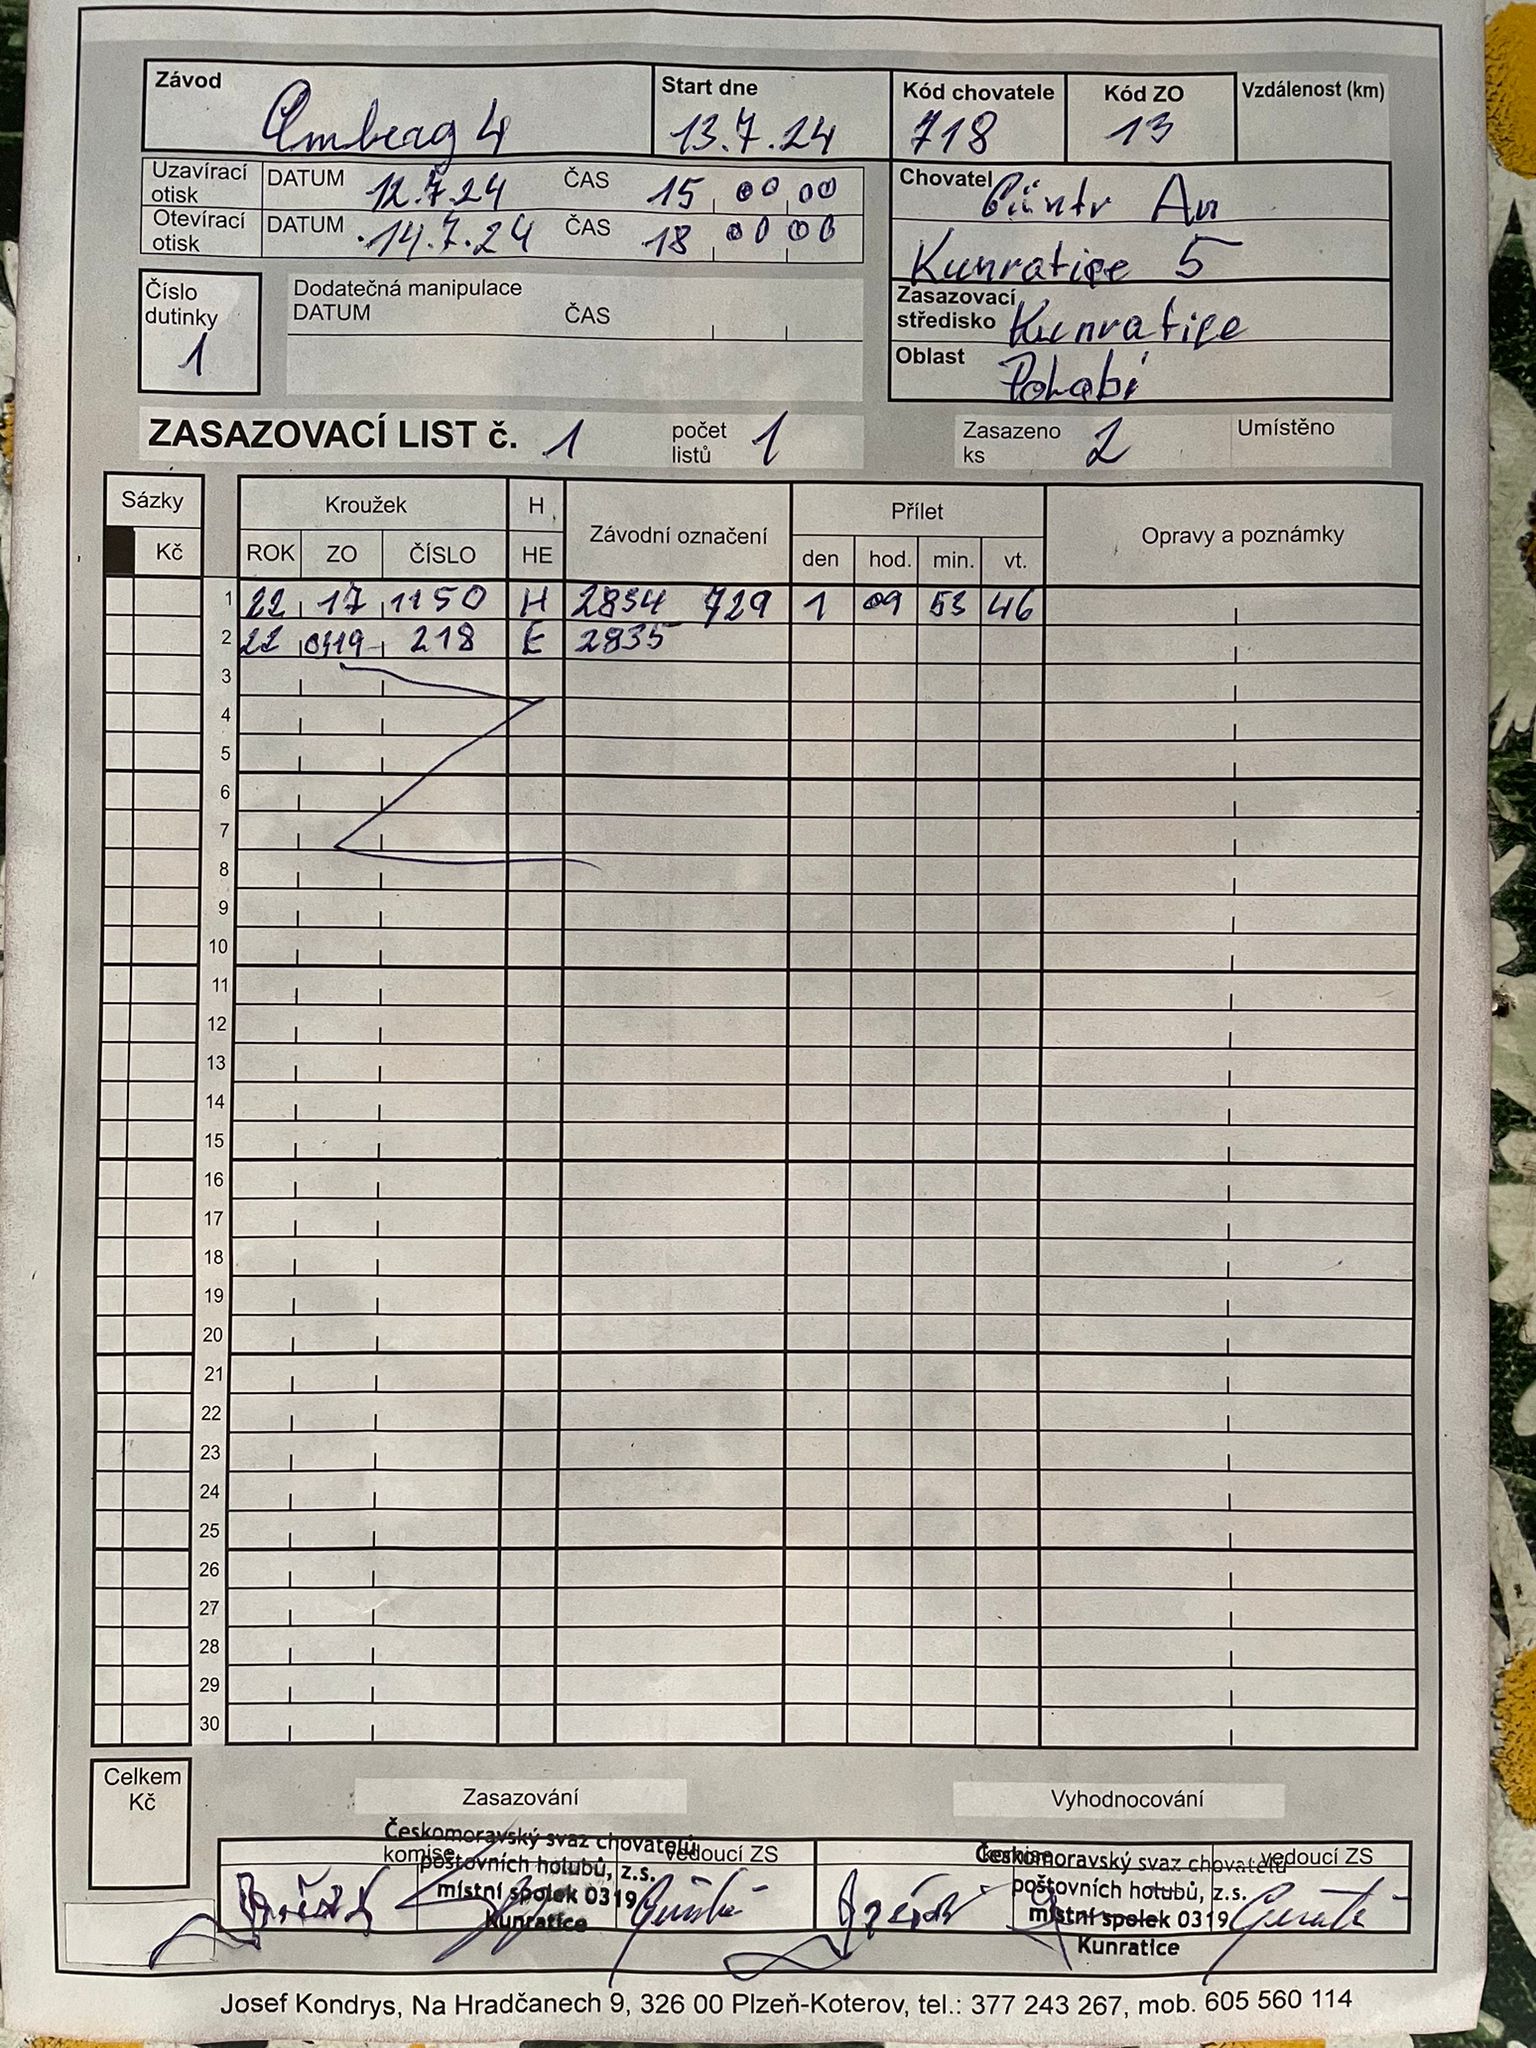 Závod Amberg 4 Start dne 13.7.24 Kód chovatele 718 Kód ZO 13 Vzdálenost (km)
Uzavírací otisk DATUM 12.7.24 ČAS 15 00 00
Otevírací otisk DATUM 14.7.24 ČAS 18 00 00
Chovatel Güntr
Kunratice 5
Zasazovací středisko Kunratice
Oblast Polabí
Číslo dutinky 1
Dodatečná manipulace
DATUM ČAS
ZASAZOVACÍ LIST č. 1 počet listů 1 Zasazeno ks 2 Umístěno
Sázky Kroužek H Závodní označení Přílet Opravy a poznámky
Kč ROK ZO ČÍSLO HE den hod. min. vt.
1 22 17 1150 H 2834 729 1 09 53 46
2 22 0319 218 E 2835
3
4
5
6
7
8
9
10
11
12
13
14
15
16
17
18
19
20
21
22
23
24
25
26
27
28
29
30
Celkem Kč
Zasazování Vyhodnocování
komise vedoucí ZS vedoucí ZS
Českomoravský svaz chovatelů
poštovních holubů, z.s.
místní spolek 0319
Kunratice
Českomoravský svaz chovatelů
poštovních holubů, z.s.
místní spolek 0319
Kunratice
Josef Kondrys, Na Hradčanech 9, 326 00 Plzeň-Koterov, tel.: 377 243 267, mob. 605 560 114